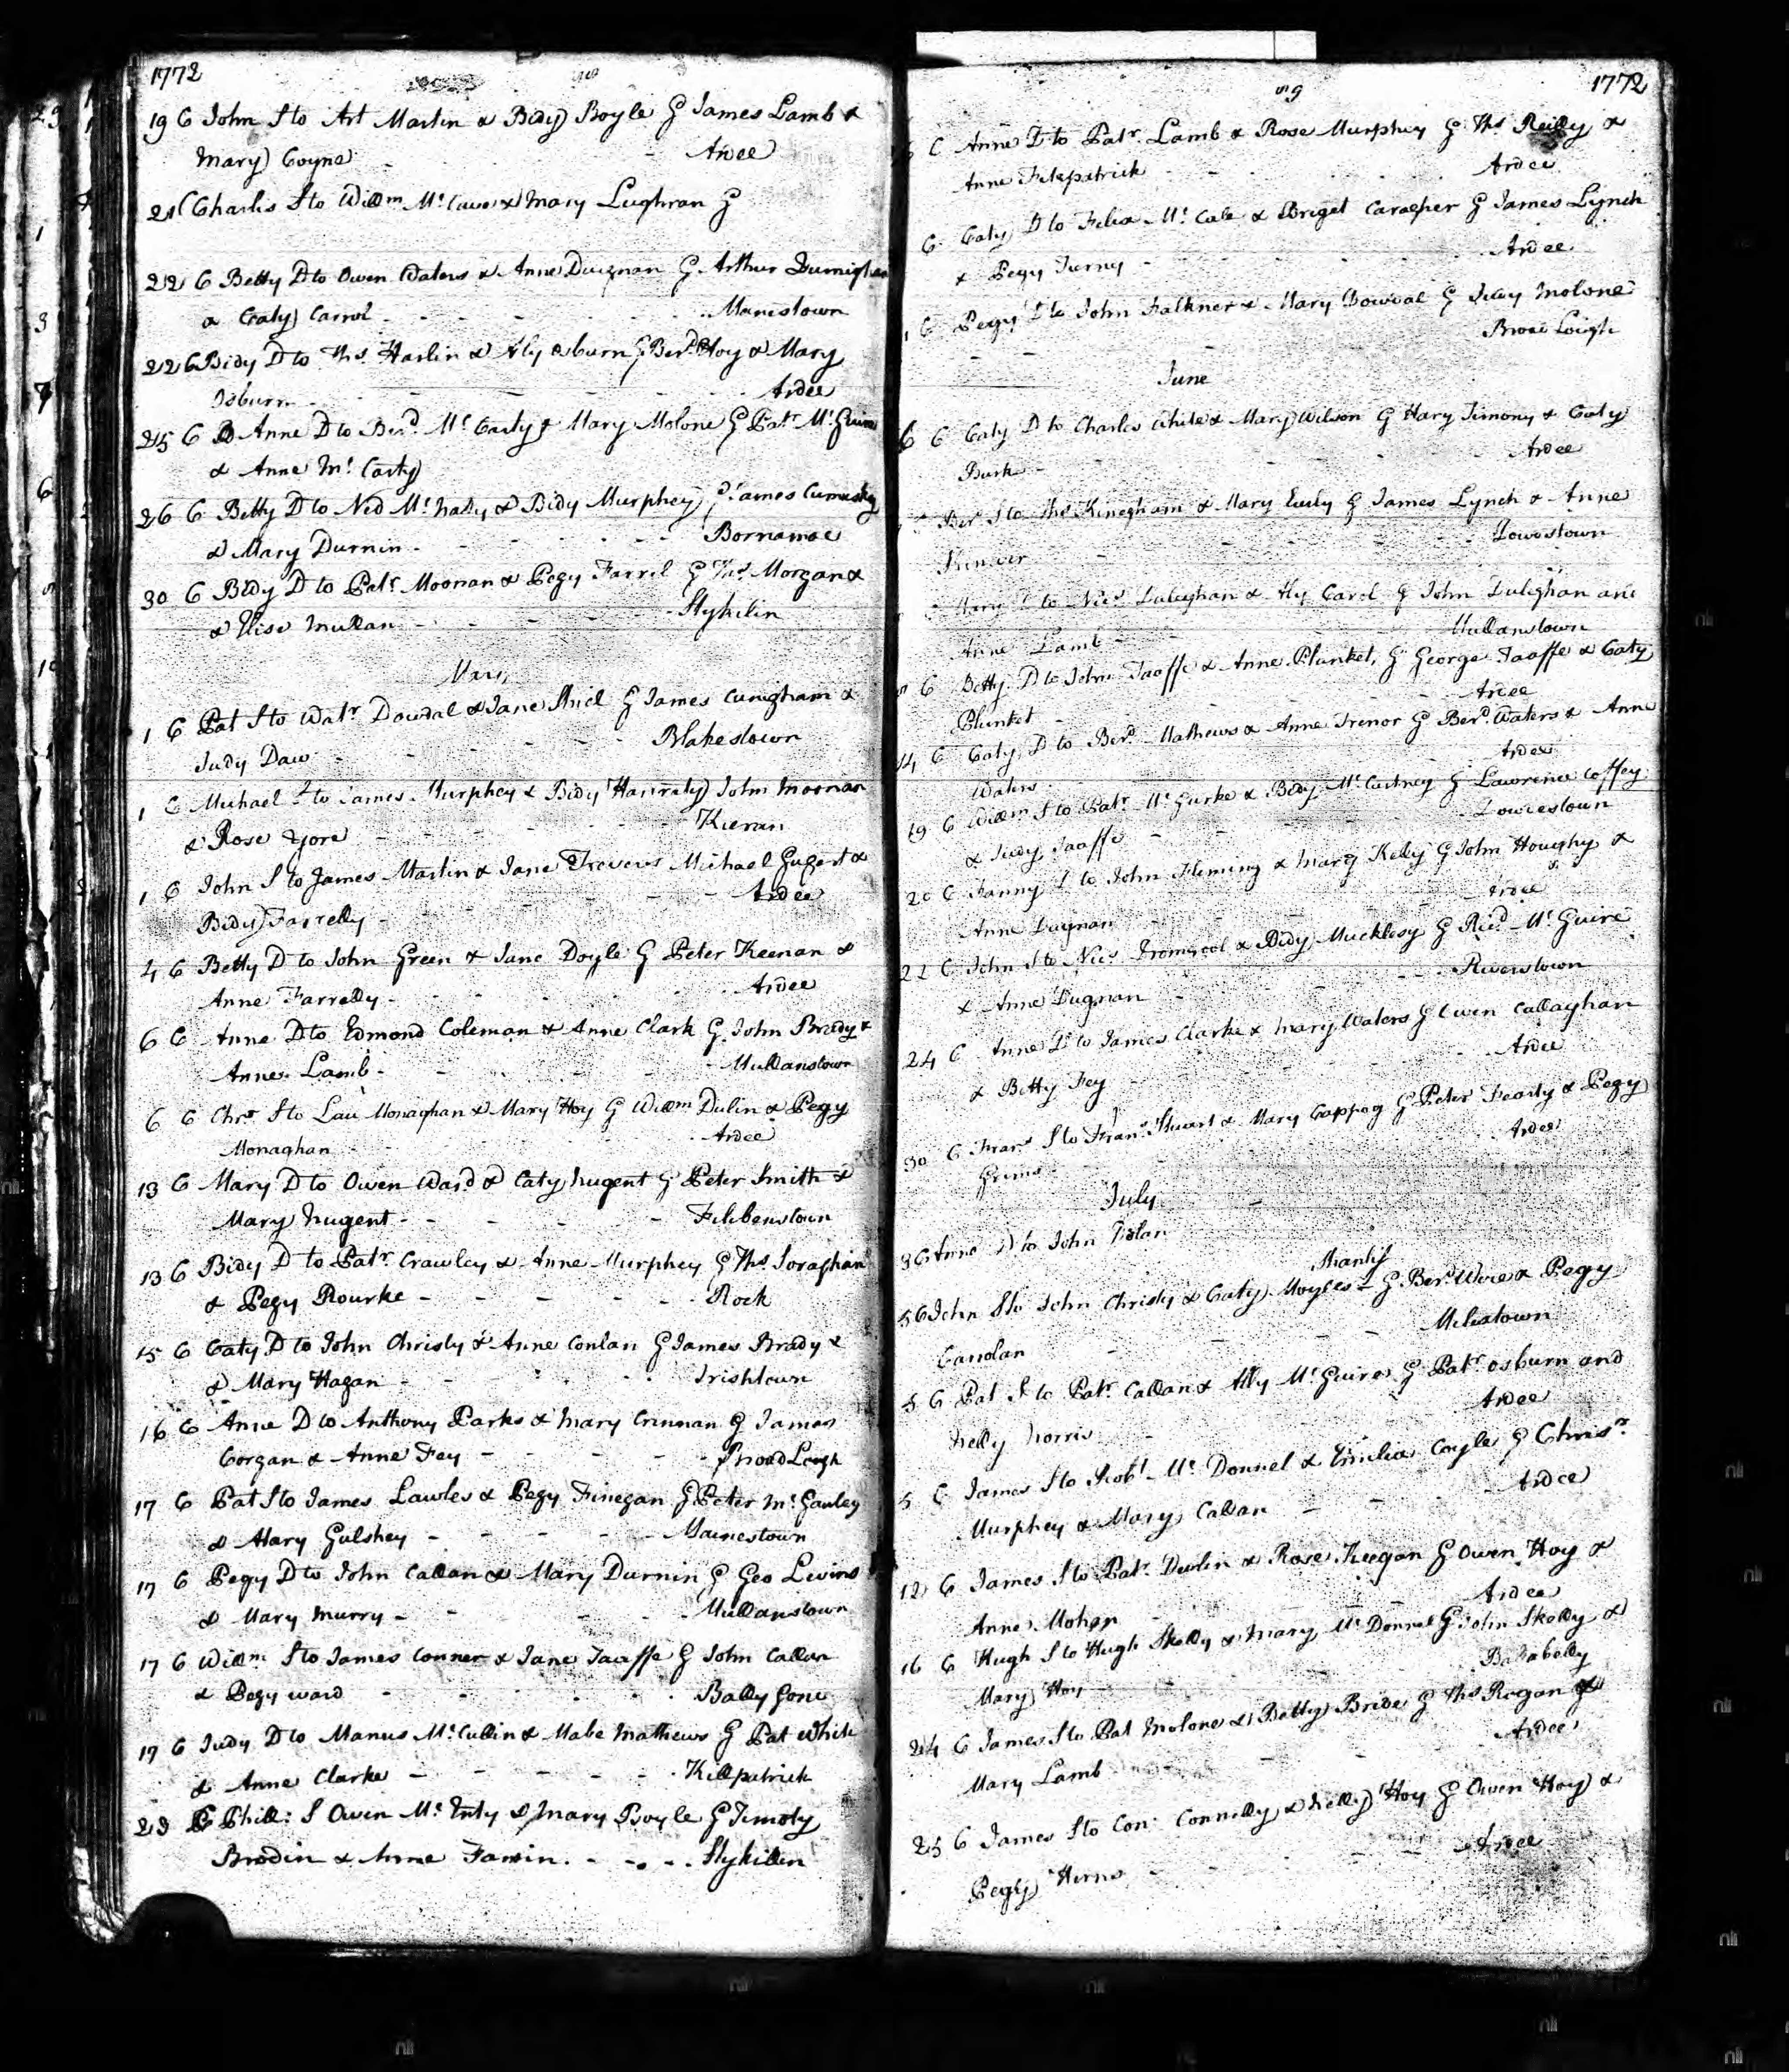 1772
19 C John S to Art Martin & Bidy Boyle G James Lamb &
Mary Coyne - Ardee
21 C Charles S to Willm Mc & Mary Lughran G
22 C Betty D to Owen Waters & Anne Duignan G Arthur
& Caty Carrol - - - - Manestown
22 C Bidy D to Ths Harlin & Aly osburn G Berd Hoy & Mary
Osburn - - - - Ardee
25 C Anne D to Berd Mc Carty & Mary Molone G Patr Mc
& Anne Mc Carty
26 C Betty D to Ned Mc Nally & Bidy Murphey G James
& Mary Durnin - - - -
30 C Bidy D to Patr Moonan & Pegy Farrel G Ths Morgan &
& Elise Mullan - - - - Stykilin
May
1 C Pat S to Watr Dowdal & Jane G James Cunigham &
Judy Daw - - - - Blakestown
1 C Michael S to James Murphey & Bidy Hanraty John Moonan
& Rose Gore - - - - Kieran
1 C John S to James Martin & Jane Trevers Michael &
Bidy Farrelly - - - - Ardee
4 C Betty D to John Green & Jane Doyle G Peter Keenan &
Anne Farrelly - - - - Ardee
6 C Anne D to Edmond Coleman & Anne Clark G John Brady &
Anne Lamb - - - - Mullanstown
6 C Chrs S to Lau Monaghan & Mary Hoy G Willm Dulin & Pegy
Monaghan - - - - Ardee
13 C Mary D to Owen Ward & Caty Nugent G Peter Smith &
Mary Nugent - - - -
13 C Bidy D to Patr Crawley & Anne Murphey G Ths Soraghan
& Pegy Rourke - - - - Rock
15 C Caty D to John Christy & Anne Conlan G James Brady &
& Mary Hagan - - - - Irishtown
16 C Anne D to Anthony Parks & Mary Crinnan G James
Corgan & Anne Fey - - - - Broad Lough
17 C Pat S to James Lawles & Pegy Finegan G Peter Mc Gauley
& Mary Gulshey - - - - Mainestown
17 C Pegy D to John Callan & Mary Durnin G Geo Levins
& Mary Murry - - - - Mullanstown
17 C Willm S to James Conner & Jane Taaffe G John Callan
& Pegy Ward - - - - Bally Gone
17 C Judy D to Manus Mc Cullin & Mabe Mathews G Pat White
& Anne Clarke - - - - Killpatrick
23 C Phill: S Owen Mc Enty & Mary Boyle G Timoty
Brodin & Anne - - - - Stykillen
89
1772
C Anne D to Patr Lamb & Rose Murphey G Ths Reilly &
Anne Fitzpatrick - - - Ardee
C Caty D to Felix Mc Cabe & Briget Caragher G James Lynch
& Pegy - - - - Ardee
C Pegy D to John Falkner & Mary Dowdal G Judy Molone
- - - - Broad Lough
June
6 C Caty D to Charles White & Mary Wilson G Hary Timony & Caty
Burk - - - - Ardee
Ber S to Ths Kinegham & Mary Early G James Lynch & Anne
- - - -
Mary D to Nics Duleghan & Aly Carol G John Duleghan and
Anne Lamb - - - - Mullanstown
8 C Betty D to John Taaffe & Anne Plunket G George Taaffe & Caty
Plunket - - - - Ardee
14 C Caty D to Berd Mathews & Anne Trenor G Berd Waters & Anne
Waters - - - - Ardee
19 C Willm S to Patr Mc Gurke & Bidy Mc Cartney G Lawrence Coffey
& Judy Taaffe - - - -
20 C Fanny D to John Fleming & Mary Kelly G John Houghy &
Anne Dugnan - - - - Ardee
21 C John S to Nics Dromgool & Bidy Mucklesy G Ricd Mc Guire
& Anne Dugnan - - - - Riverstown
24 C Anne D to James Clarke & Mary Waters G Owen Callaghan
& Betty Fey - - - - Ardee
30 C Frans S to Frans Stuart & Mary Cappog G Peter Fearty & Pegy
Grims - - - - Ardee
July
3 C Anne D to John Nolan
5 C John S to John Christy & Caty Moyles G Berd Were & Pegy
Canolan - - - - Milestown
5 C Pat S to Patr Callan & Ally Mc Guire G Patr osburn and
Nelly Norris - - - - Ardee
5 C James S to Robt Mc Donnel & Emilia Coyle G Chrisr
Murphey & Mary Callan - - - - Ardee
12 C James S to Patr Dowlin & Rose Keegan G Owen Hoy &
Anne Mohan - - - - Ardee
16 C Hugh S to Hugh Skelly & Mary Mc Donnel G John Skelly &
Mary Hoy - - - -
24 C James S to Pat Molone & Betty Bride G Ths Rogan &
Mary Lamb - - - - Ardee
25 C James S to Con Connelly & Nelly Hoy G Owen Hoy &
Pegy Herns - - - - Ardee